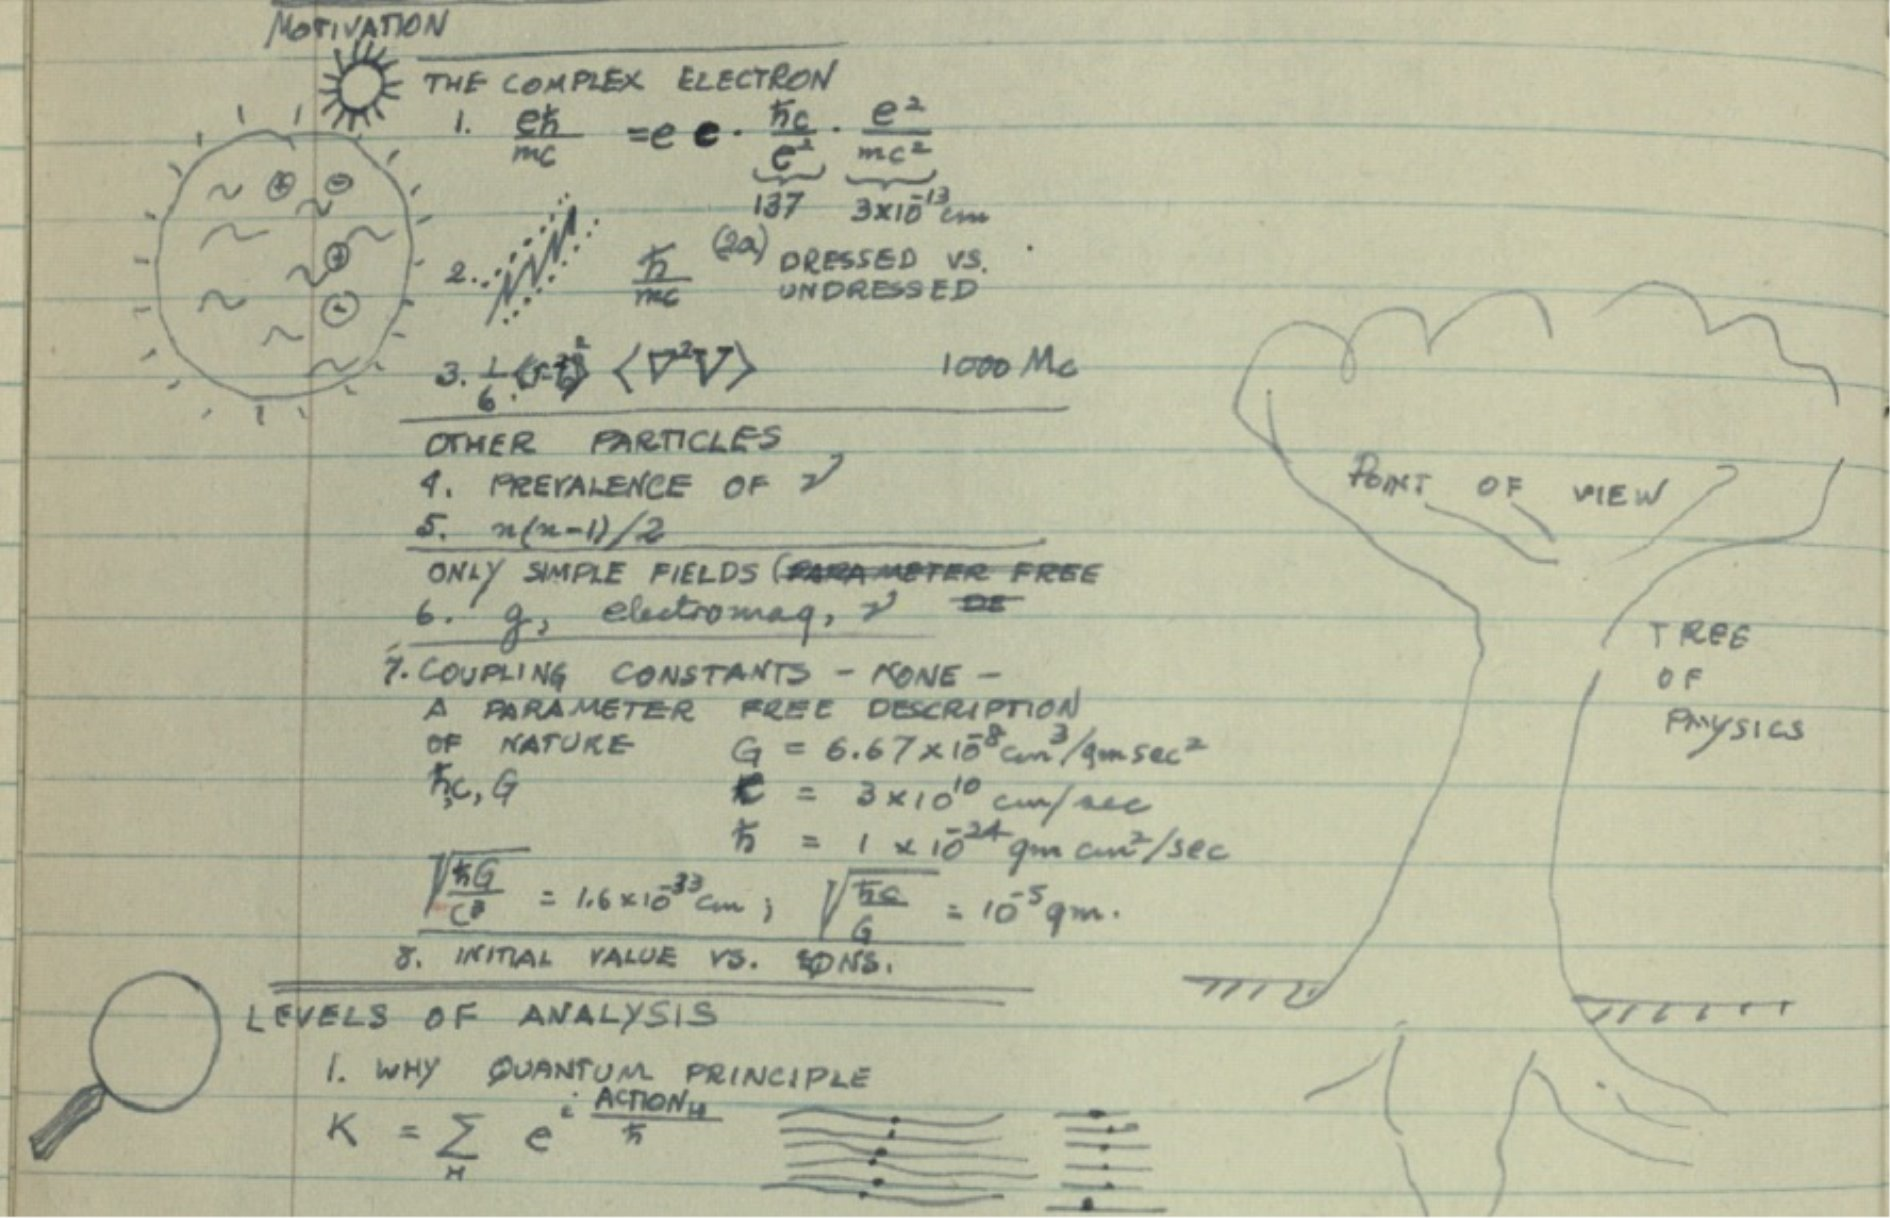 MOTIVATION
THE COMPLEX ELECTRON
1. eħ/mc = e e · ħc/e² · e²/mc²
137 3×10⁻¹³ cm
2. ħ/mc (2a) DRESSED VS.
UNDRESSED
3. 1/6 ⟨∇²V⟩ 1000 Mc
OTHER PARTICLES
4. PREVALENCE OF ν
5. n(n-1)/2
ONLY SIMPLE FIELDS (PARAMETER FREE
DE
6. g, electromag, ν
7. COUPLING CONSTANTS - NONE -
A PARAMETER FREE DESCRIPTION
OF NATURE G = 6.67×10⁻⁸ cm³/gm sec²
ħ, c, G c = 3×10¹⁰ cm/sec
ħ = 1 × 10⁻²⁴ gm cm²/sec
√(ħG/c³) = 1.6×10⁻³³ cm ; √(ħc/G) = 10⁻⁵ gm.
8. INITIAL VALUE VS. EQNS.
LEVELS OF ANALYSIS
1. WHY QUANTUM PRINCIPLE
K = Σ_H e^(i ACTION_H/ħ)
POINT OF VIEW
TREE
OF
PHYSICS